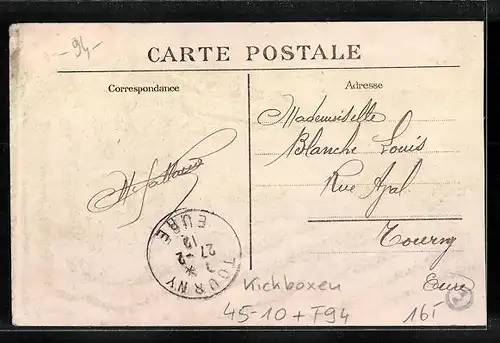 -94-
CARTE POSTALE
Correspondance
Adresse
Mademoiselle
Blanche Louis
Rue
Tourny
Eure
TOURNY
EURE
27 -2
12
Kichboxen
45-10 + F94
16